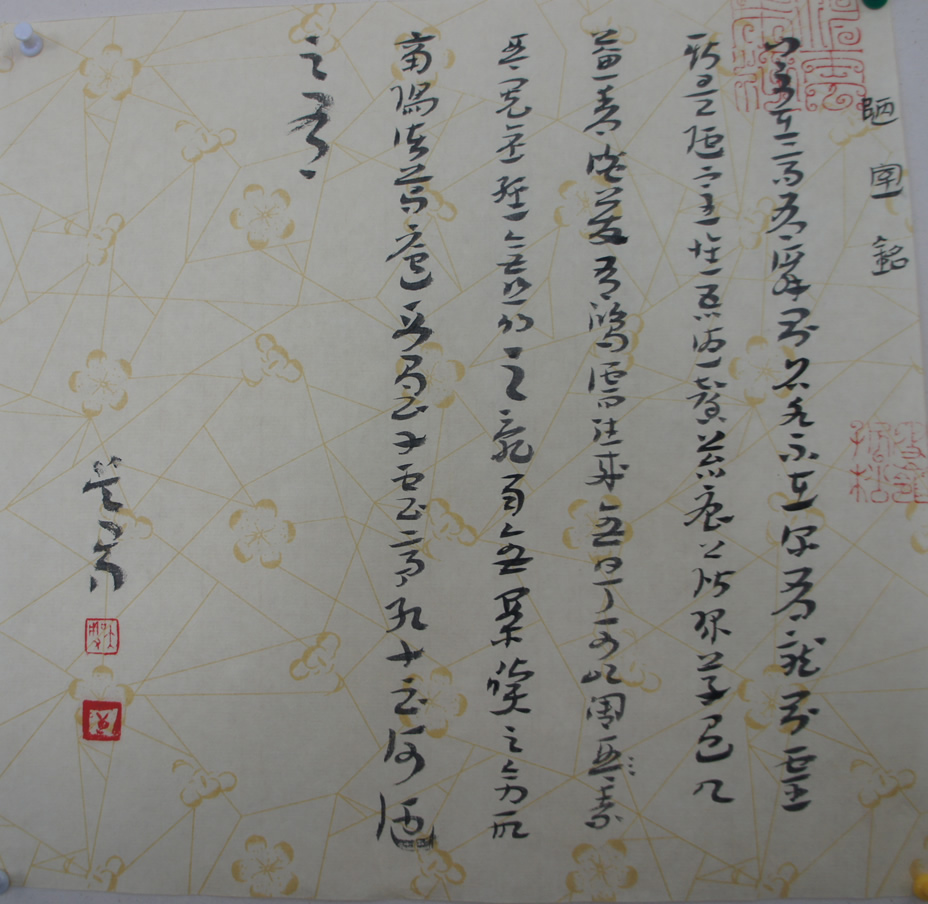 陋室銘
山不在高有僊則名水不在深有龍則靈
斯是陋室惟吾德馨苔痕上階綠草色入
簾青談笑有鴻儒往來無白丁可以調琴素
琴閱金經無絲竹之亂耳無案牘之勞形
南陽諸葛廬西蜀子雲亭孔子云何陋
之有